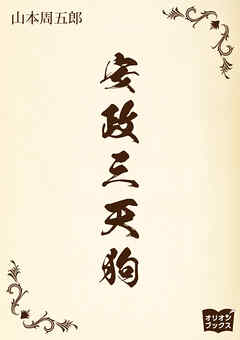 山本周五郎
安政三天狗
オリオン
ブックス